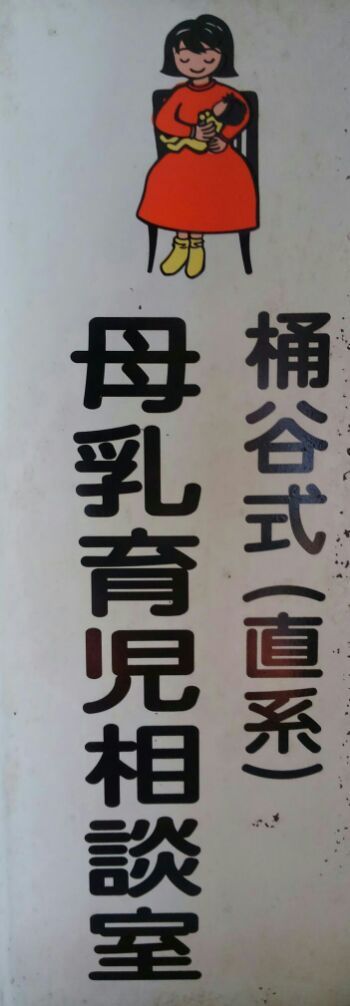 桶谷式（直系）
母乳育児相談室